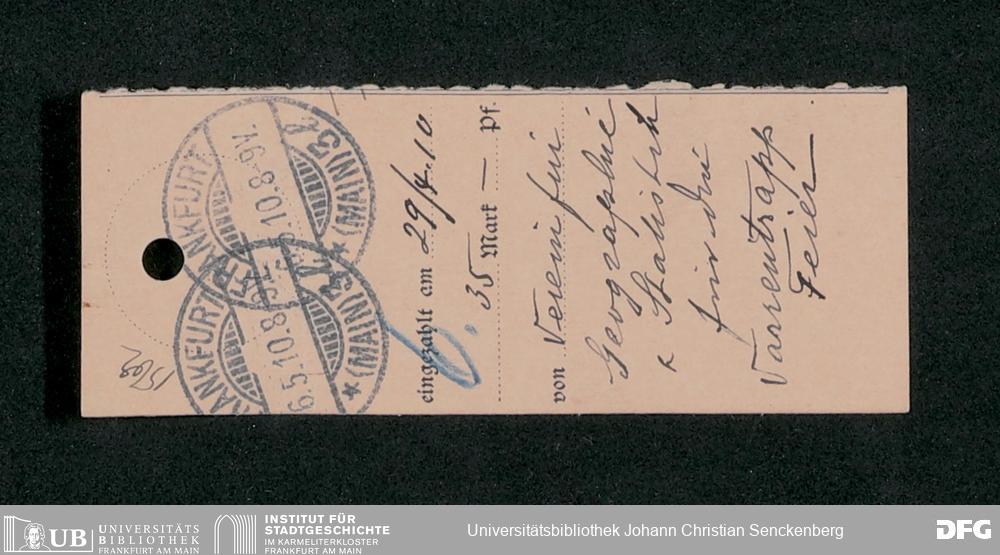 FRANKFURT
* (MAIN) 3
6.5.10.8-9V.
FRANKFURT
* (MAIN) 3
6.5.10.8-9V.
eingezahlt am 29/4.10
35 Mark — Pf.
von Verein für
Geographie
& Statistik
für die
Varrentrapp
Feier
UB UNIVERSITÄTS
BIBLIOTHEK
FRANKFURT AM MAIN
INSTITUT FÜR
STADTGESCHICHTE
IM KARMELITERKLOSTER
FRANKFURT AM MAIN
Universitätsbibliothek Johann Christian Senckenberg
DFG